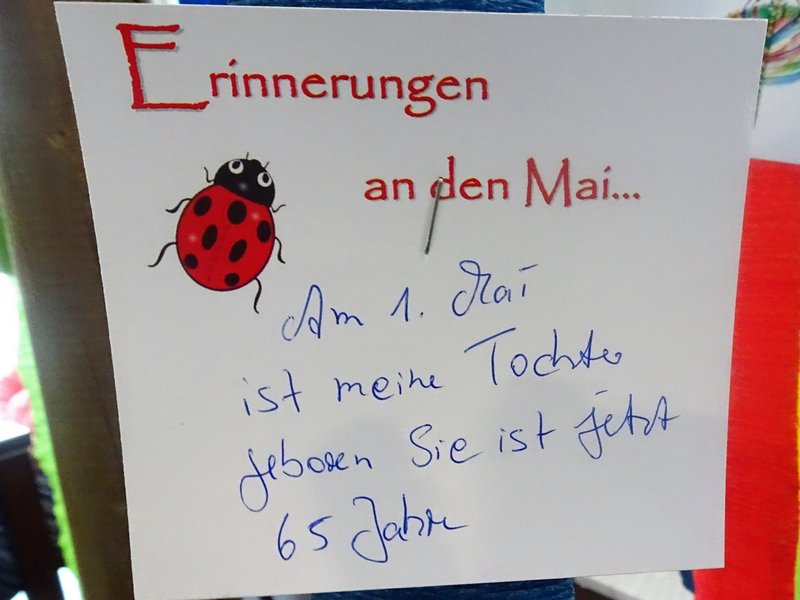 Erinnerungen
an den Mai...
Am 1. Mai
ist meine Tochter
geboren Sie ist jetzt
65 Jahre